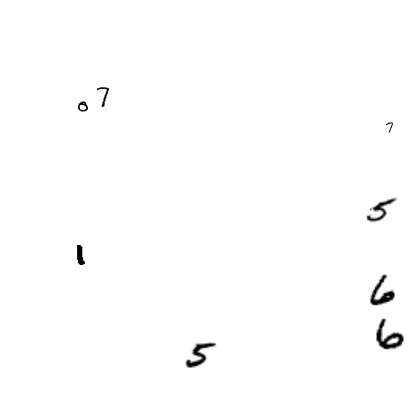 0 7
7
5
1
6
6
5